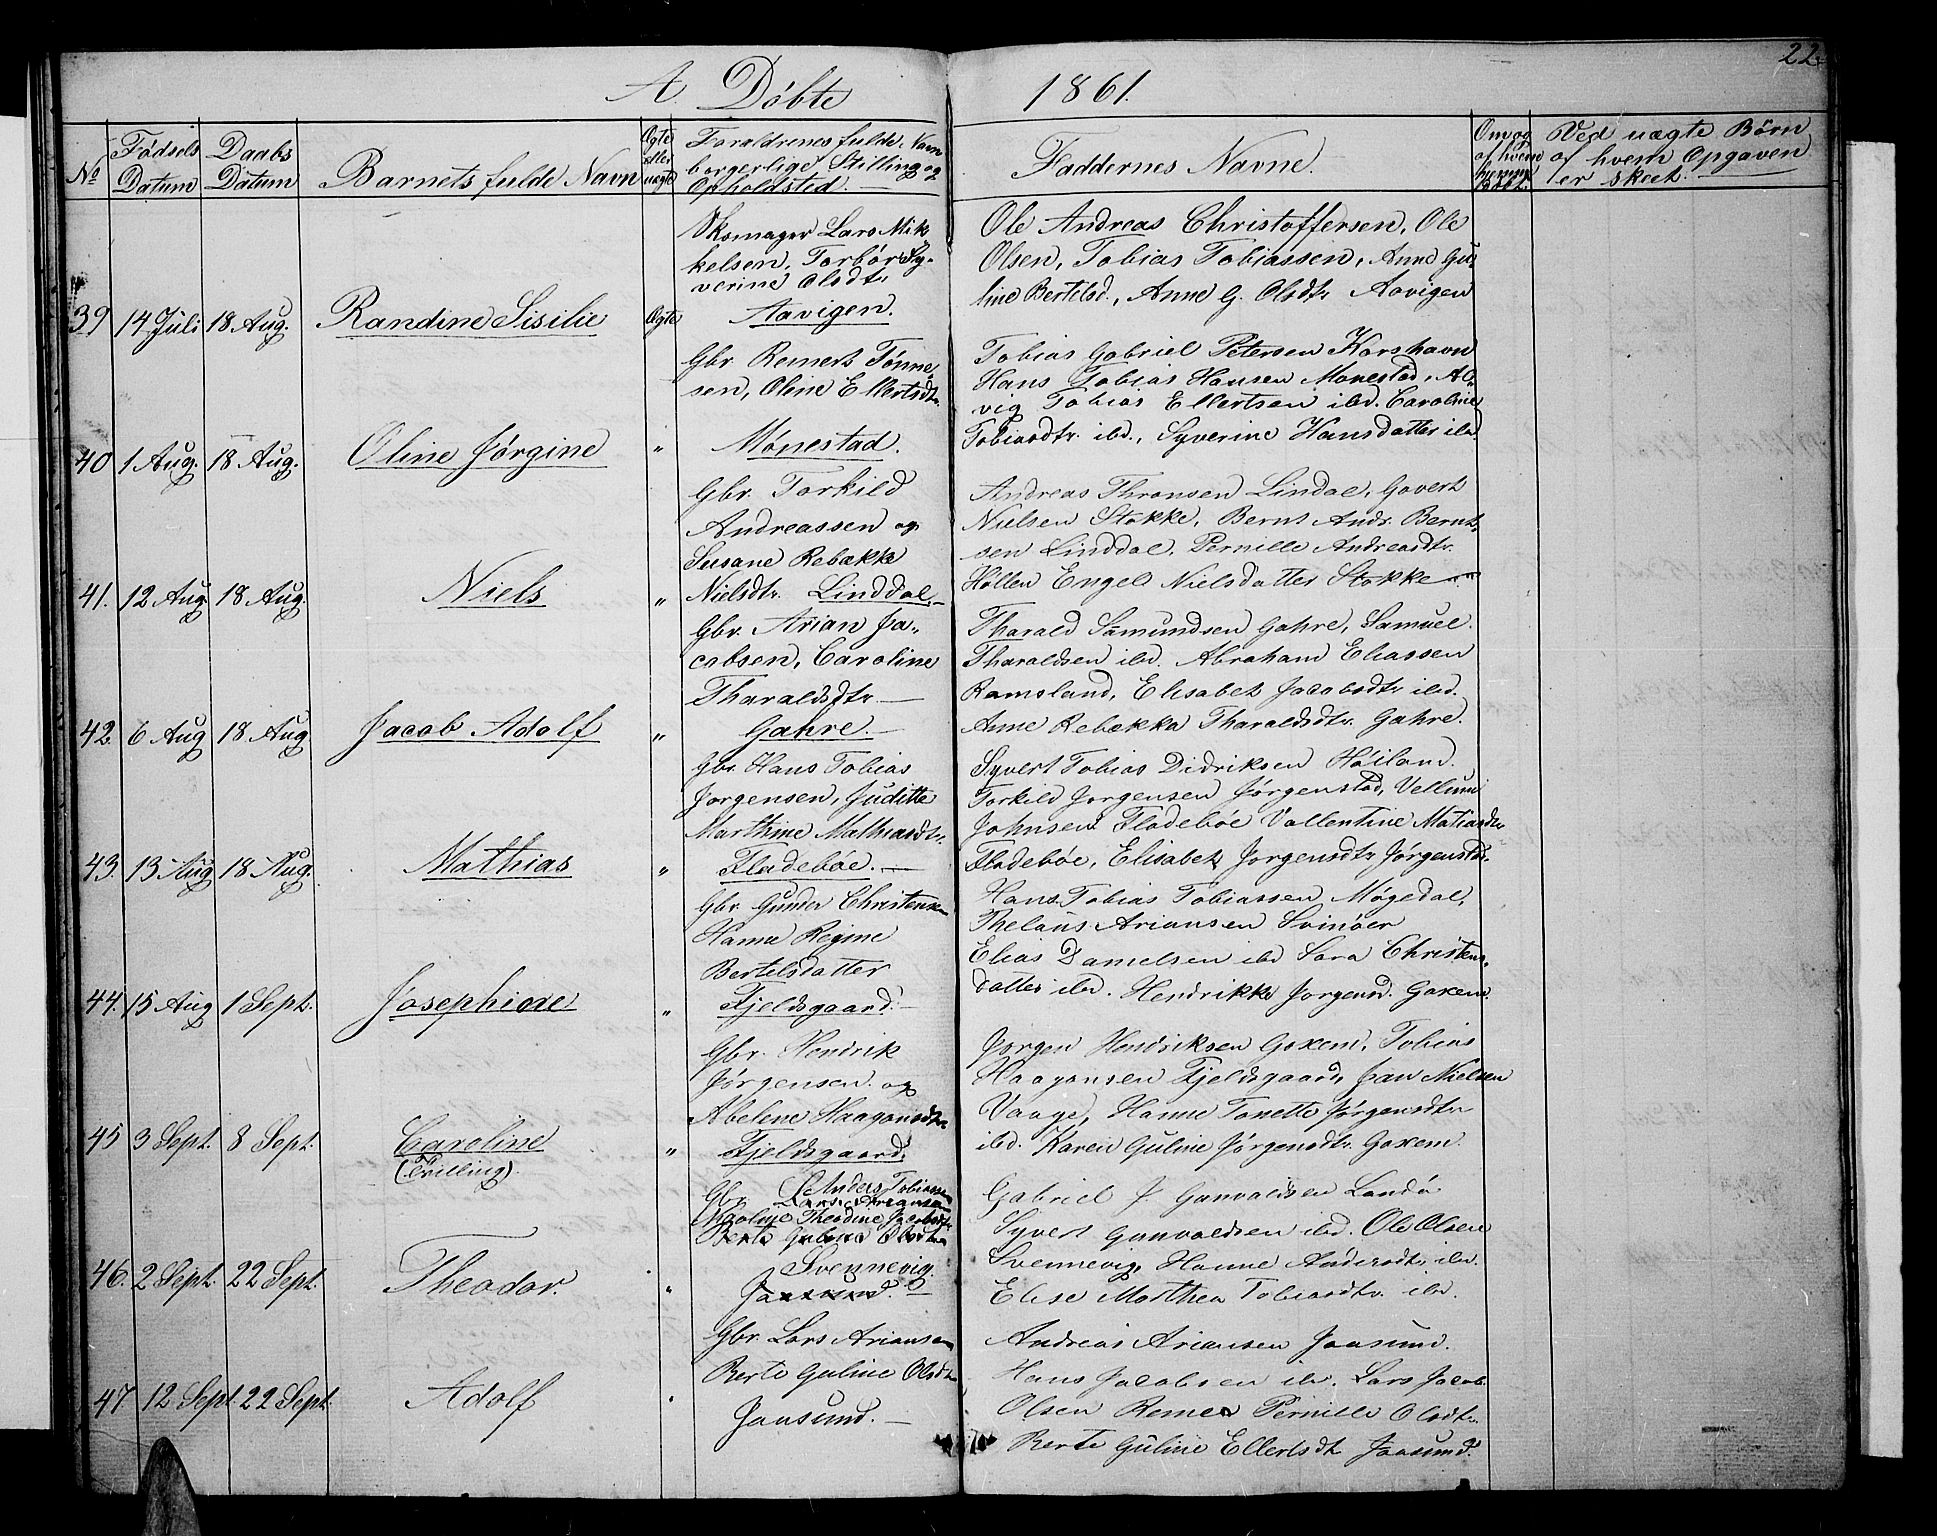 22.
A. Døbte 1861.
No
Fødsels Datum
Daabs Datum
Barnets fulde Navn
Ægte eller uægte
Forældrenes fulde Navn
borgerlige Stilling og
Opholdsted.
Faddernes Navne.
Om og af hvem
Ved uægte Børn
af hvem Opgaven
er skeet.
39 14 Juli 18 Aug. Randine Sisilie Ægte
Skomager Lars Mik
kelsen, Torbør Sy-
verine Olsdtr
Aavigen.
Ole Andreas Christoffersen, Ole
Olsen, Tobias Tobiassen, Anne Gu-
line Bertelsd., Anne G. Olsdtr Aavigen
40 1 Aug. 18 Aug. Oline Jørgine "
Gbr. Reinert Tønne-
sen, Oline Ellertsdtr.
Mønestad.
Tobias Gabriel Petersen Korshavn
Hans Tobias Hansen Mønestad,
vig Tobias Ellertsen ibd. Caroline
Tobiasdtr. ibd., Syverine Hansdatter ibd.
41. 12 Aug 18 Aug. Niels "
Gbr. Torkild
Andreassen og
Susane Rebækka
Nielsdtr. Linddal.
Andreas Thronsen Lindal, Govert
Nielsen Stokke, Bernt Andr. Bernt-
sen Linddal, Pernille Andreasdtr.
Høllen Engel Nielsdatter Stokke
42. 6 Aug 18 Aug Jacob Adolf "
Gbr. Arian Ja-
cobsen, Caroline
Tharaldsdtr.
Gahre.
Tharald Samundsen Gahre, Samuel
Tharaldsen ibd. Abraham Eliassen
Ramsland, Elisabet Jacobsdtr ibd.
Anne Rebækka Tharaldsdtr. Gahre.
43. 13 Aug 18 Aug. Mathias "
Gbr. Hans Tobias
Jørgensen, Juditte
Marthine Mathiasdtr.
Fladebøe.
Syvert Tobias Didriksen Høiland.
Torkild Jørgensen Jørgenstad, Vellum
Johnsen Fladebøe Vallentine Matiasdtr
Fladebøe, Elisabet Jørgensdtr Jørgenstad.
44. 15 Aug 1 Sept. Josephine "
Gbr. Gunder Christensen
Hanne Regine
Bertelsdatter
Fjeldsgaard.
Hans Tobias Tobiassen Møgedal,
Thelaus Ariansen Svinøer
Elias Danielsen ibd Sara Christens-
datter ibd. Hendrikke Jørgensd. Goxem.
45 3 Sept. 8 Sept. Caroline "
(Tvilling).
Gbr. Hendrik
Jørgensen og
Abelene Haagonsdtr
Fjeldsgaard.
Jørgen Hendriksen Goxem, Tobias
Haagonsen Fjeldsgaard, Jan Nielsen
Vaage, Hanne Tonette Jørgensdtr
ibd. Karen Guline Jørgensdtr. Goxem.
46. 2 Sept. 22 Sept. Theodor. "
Gbr. Anders Tobiassen
Lars Ariansen
Theodine Jacobsdtr
Berte Guline Olsdtr
Svennevig.
Jaasund.
Gabriel J Gunvaldsen Landø
Syvert Gunvaldsen ibd. Ole Olsen
Svennevig, Hanne Andersdtr ibd.
Elise Marthea Tobiasdtr. ibd.
47 12 Sept 22 Sept. Adolf "
Gbr. Lars Ariansen
Berte Guline Olsdtr
Jaasund.
Andreas Ariansen Jaasund.
Hans Jacobsen ibd. Lars Jacob
Olsen Remes Pernille Olsdtr.
Berte Guline Ellertsdt Jaasund.